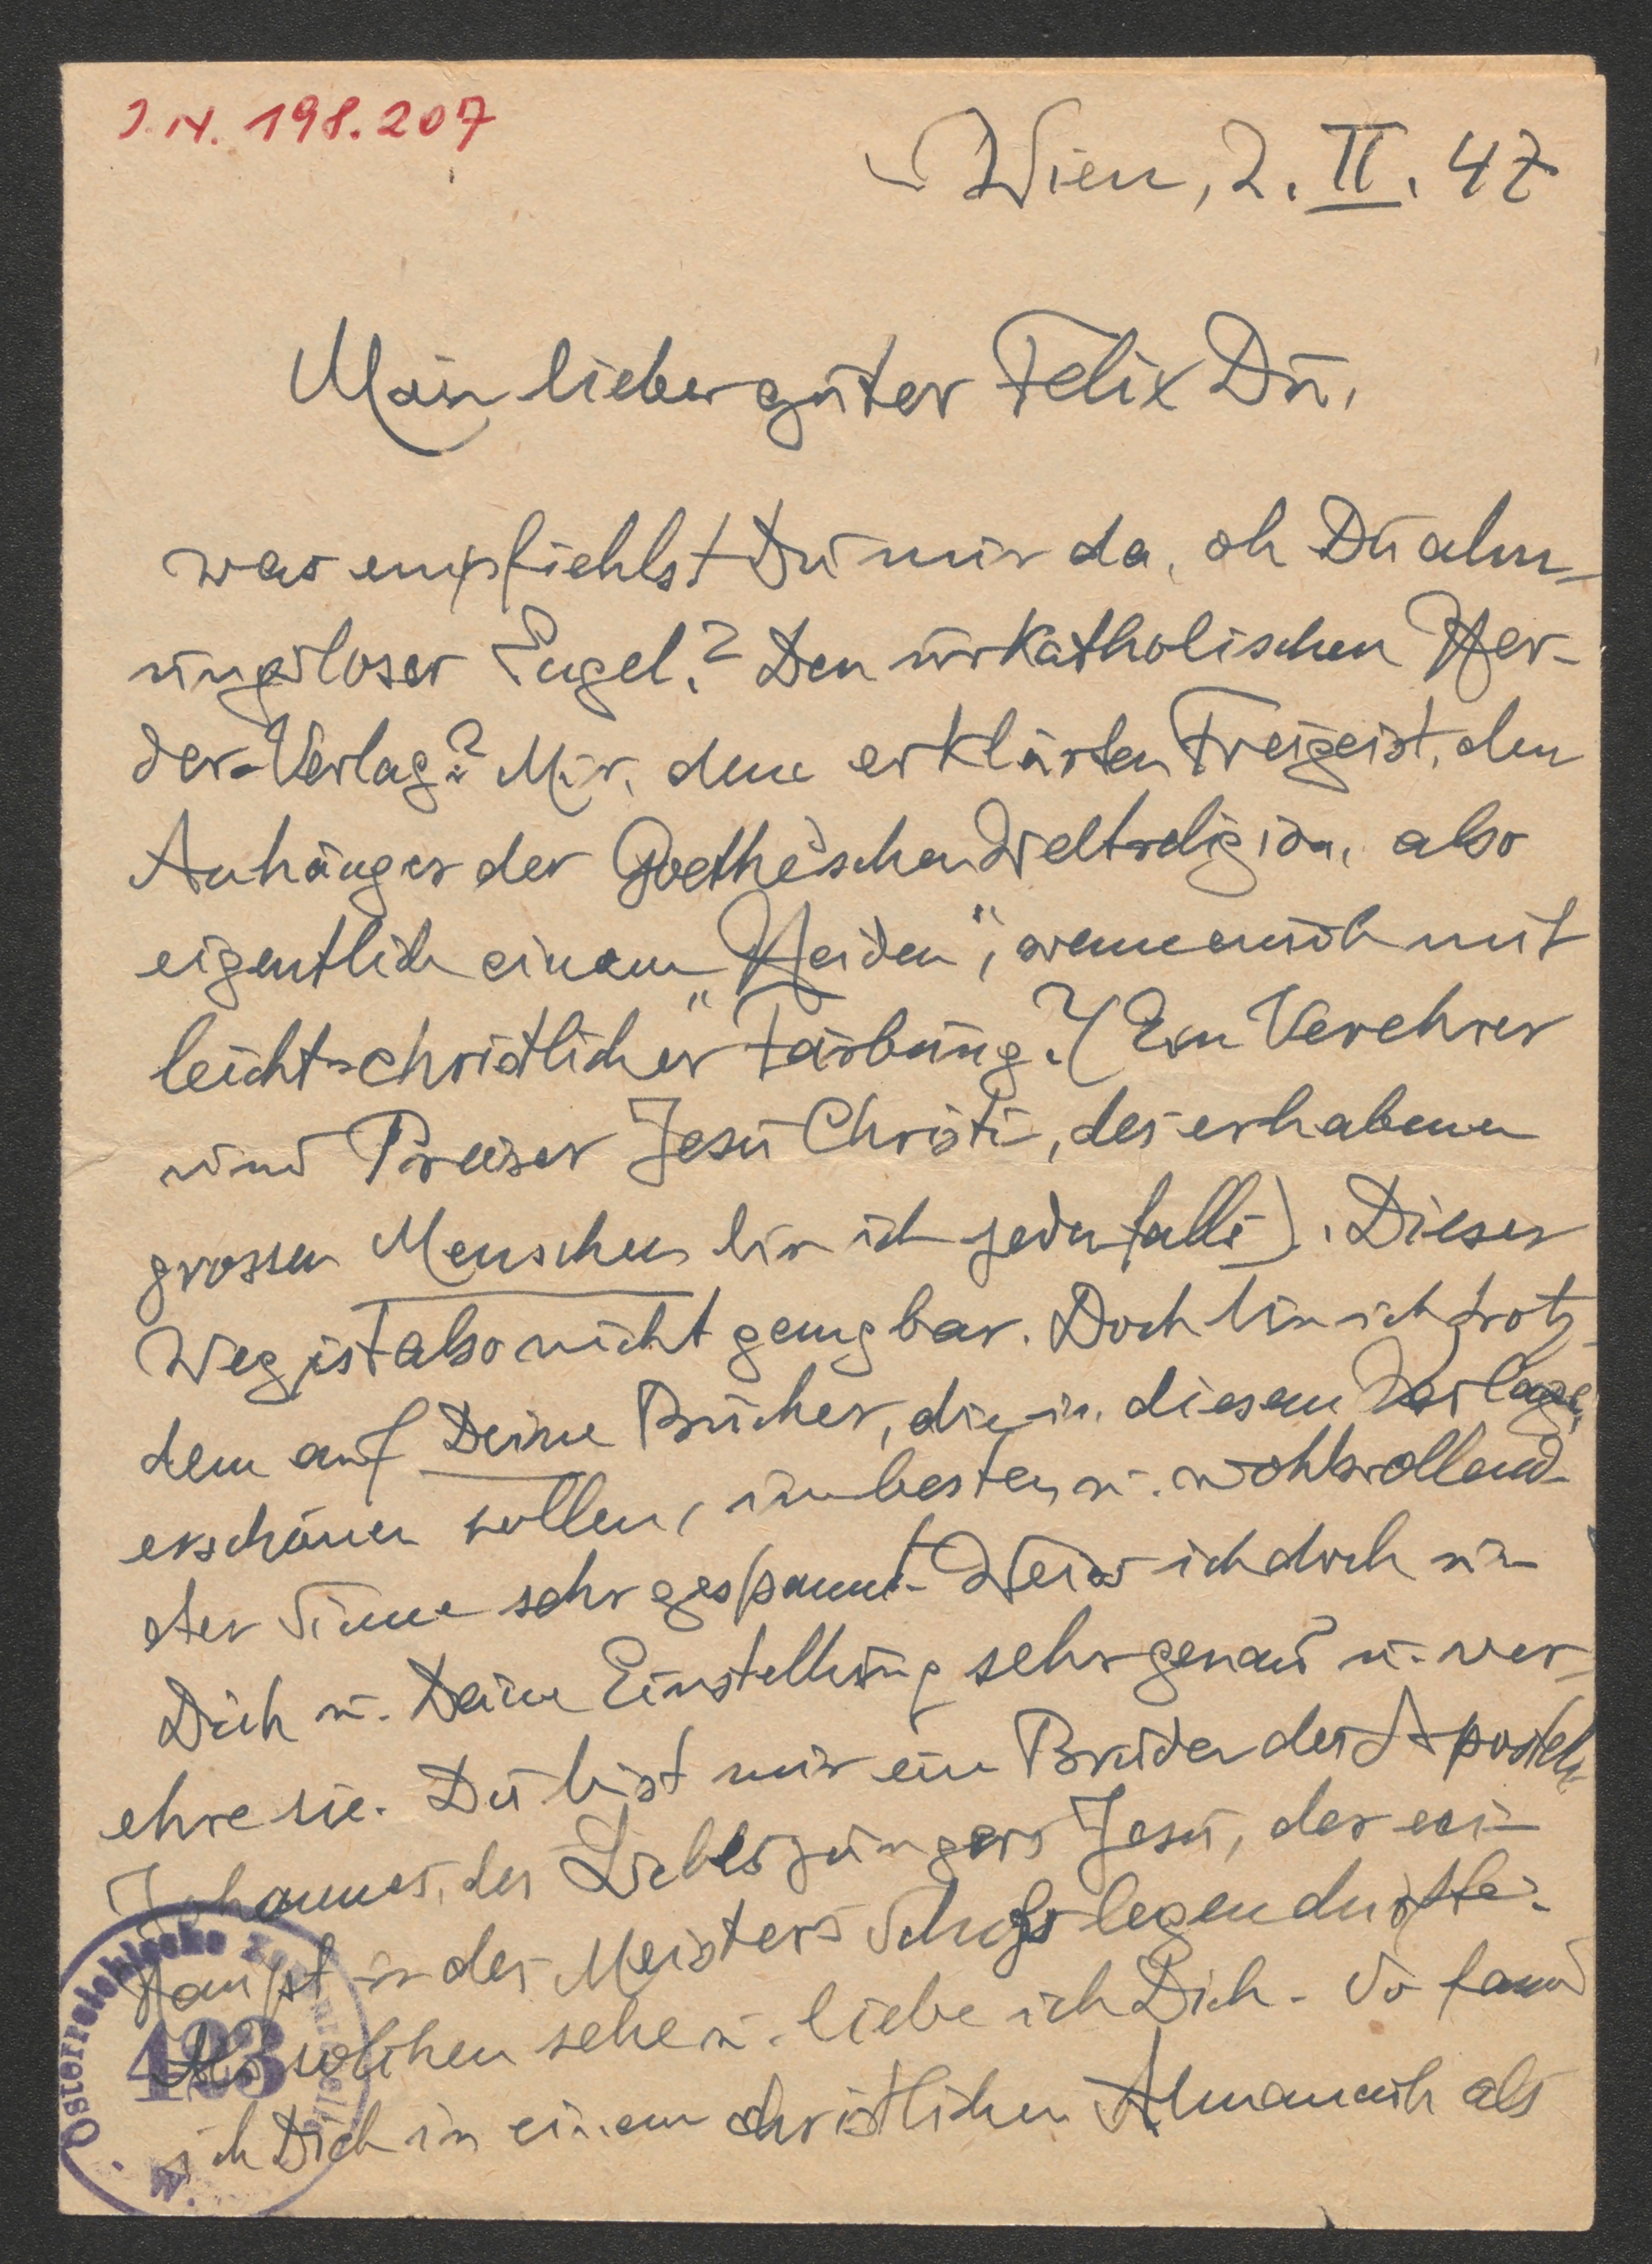 J.N. 198.207
Wien, 2. II. 47
Mein lieber guter Felix Du,
was empfiehlst Du mir da, oh Du ahn-
ungsloser Engel? Den urkatholischen Her-
der-Verlag? Mir, dem erklärten Freigeist, dem
Anhänger der Goethe'schen Weltreligion, also
eigentlich einem „Heiden", wenn auch mit
leicht-„christlicher" Färbung? (Ein Verehrer
und Preiser Jesu Christi, des erhabenen
grossen Menschen bin ich jedenfalls). Dieser
Weg ist also nicht gangbar. Doch bin ich trotz-
dem auf Deine Bücher, die in diesem Verlage
erscheinen sollen, im besten u. wohlwollend-
sten Sinne sehr gespannt. Weiss ich doch um
Dich u. Deine Einstellung sehr genau u. ver-
ehre sie. Du bist mir ein Bruder des Apostels
Johannes, des Liebesjüngers Jesu, der sein
Haupt in des Meisters Schoß legen durfte.
Als solchen sehe u. liebe ich Dich. So fand
ich Dich in einem christlichen Almanach als
Österreichische
423
W.